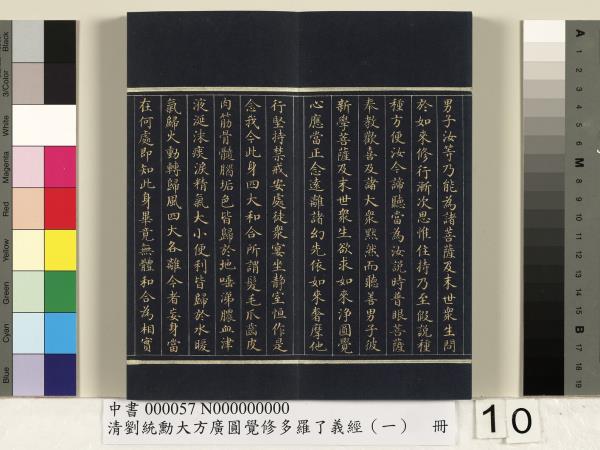 男子汝等乃能為諸菩薩及末世眾生問
於如來修行漸次思惟住持乃至假說種
種方便汝今諦聽當為汝說時普眼菩薩
奉教歡喜及諸大眾默然而聽善男子彼
新學菩薩及末世眾生欲求如來淨圓覺
心應當正念遠離諸幻先依如來奢摩他
行堅持禁戒安處徒眾宴坐靜室恒作是
念我今此身四大和合所謂髮毛爪齒皮
肉筋骨髓腦垢色皆歸於地唾涕膿血津
液涎沫痰淚精氣大小便利皆歸於水暖
氣歸火動轉歸風四大各離今者妄身當
在何處即知此身畢竟無體和合為相實
中書 000057 N000000000
清劉統勳大方廣圓覺修多羅了義經（一） 冊
10
Black
3/Color
White
Magenta
Red
Yellow
Green
Cyan
Blue
A
1
2
3
4
5
6
M
8
9
10
11
12
13
14
15
B
17
18
19